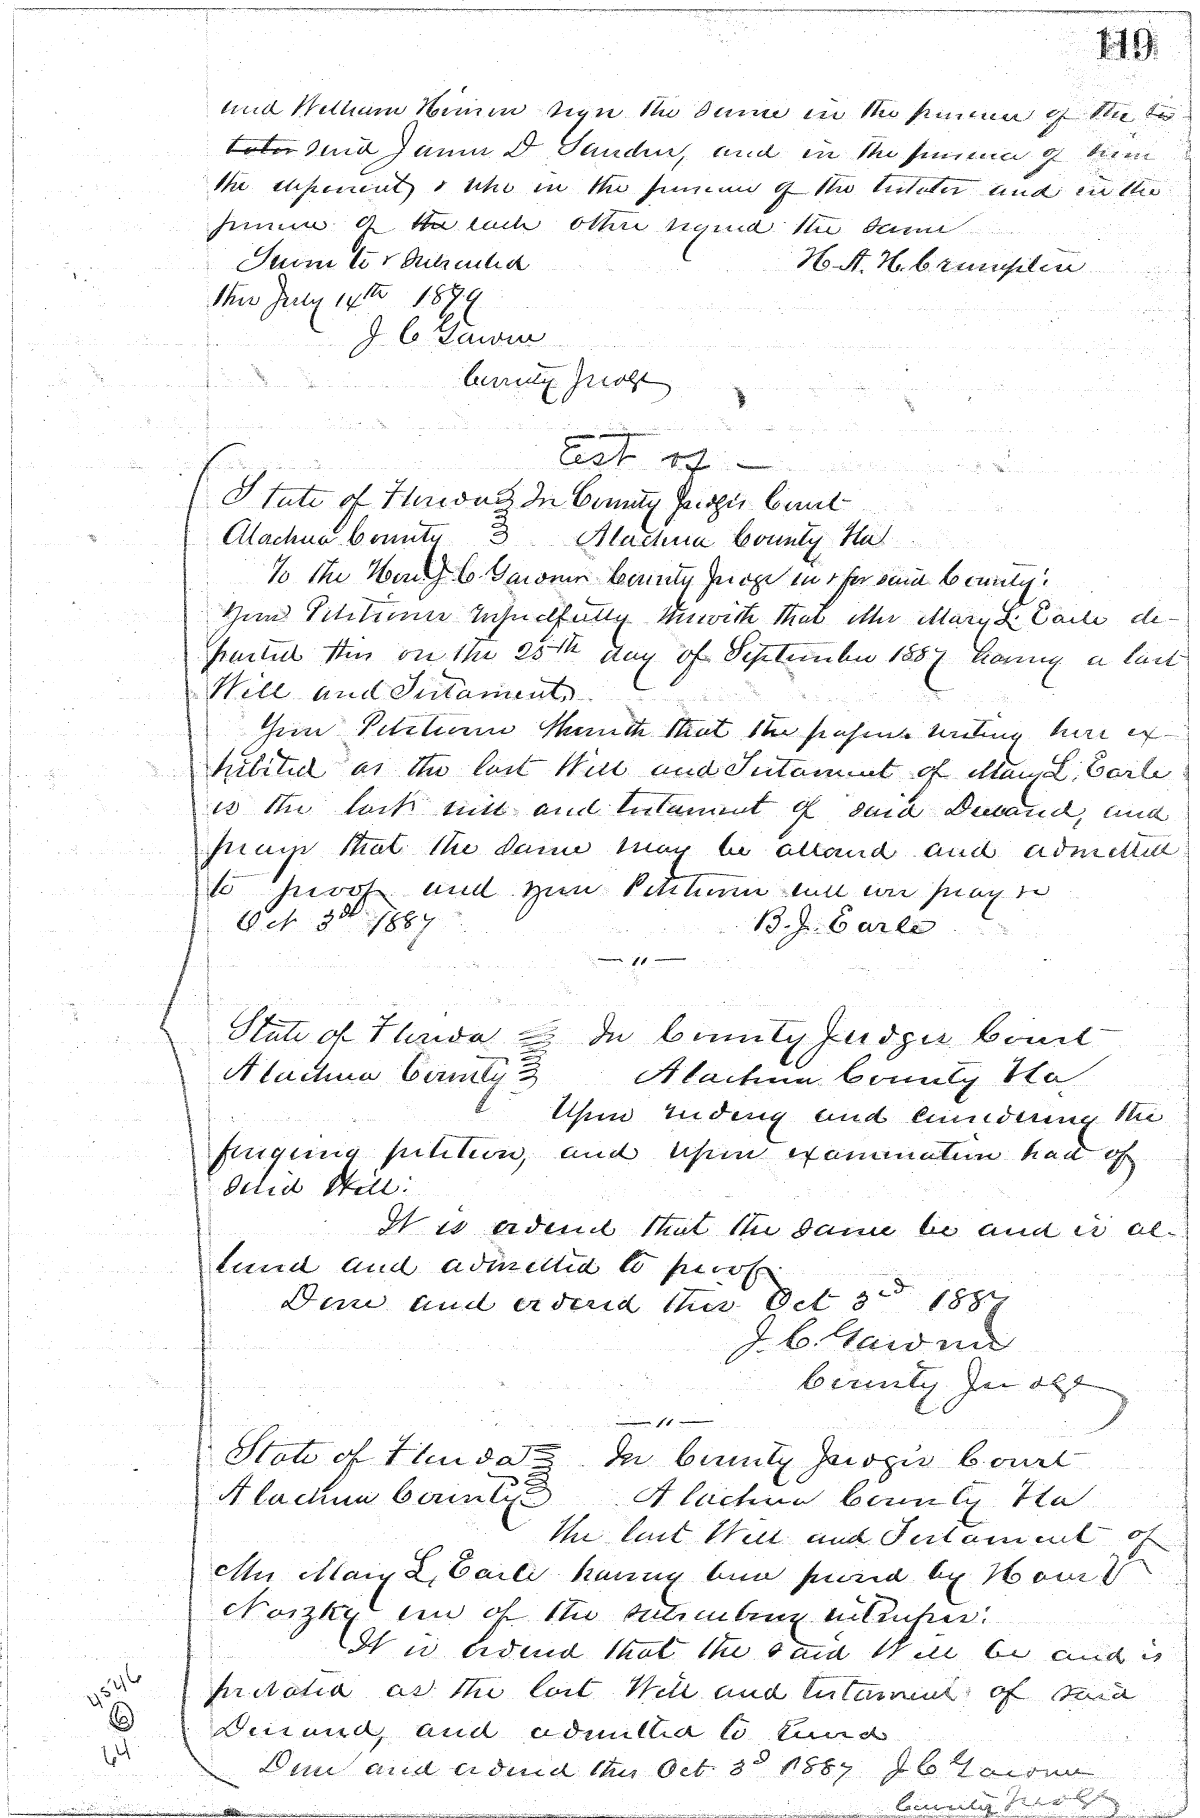 119
and William Hinson sign the same in the presence of the tes
tator said James D Sanders, and in the presence of him
the deponent, & who in the presence of the testator and in the
presence of the each other signed the same
Sworn to & subscribed H. A. H. Crumplin
this July 14th 1879
J C Gardner
County Judge
Est of —
State of Florida In County Judges Court
Alachua County Alachua County Fla
To the Hon J. C. Gardner County Judge in & for said County:
Your Petitioner respectfully sheweth that Mrs Mary L. Earle de-
parted this on the 25th day of September 1887 having a last
Will and Testament.
Your Petitioner Sheweth that the paper writing here ex-
hibited as the last Will and Testament of Mary L. Earle
is the last will and testament of said Deceased, and
prays that the same may be allowed and admitted
to proof and your Petitioner will ever pray &c
Oct 3rd 1887 B. J. Earle
— " —
State of Florida In County Judges Court
Alachua County Alachua County Fla
Upon reading and considering the
foregoing petition, and upon examination had of
said Will:
It is ordered that the same be and is al-
lowed and admitted to proof.
Done and ordered this Oct 3rd 1887
J. C. Gardner
County Judge
— " —
State of Florida In County Judges Court
Alachua County Alachua County Fla
The last Will and Testament of
Mrs Mary L. Earle having been proved by
one of the subscribing witnesses:
It is ordered that the said Will be and is
probated as the last Will and testament of said
Deceased, and admitted to record
Done and ordered this Oct 3d 1887 J C Gardner
County Judge
4546
6
64